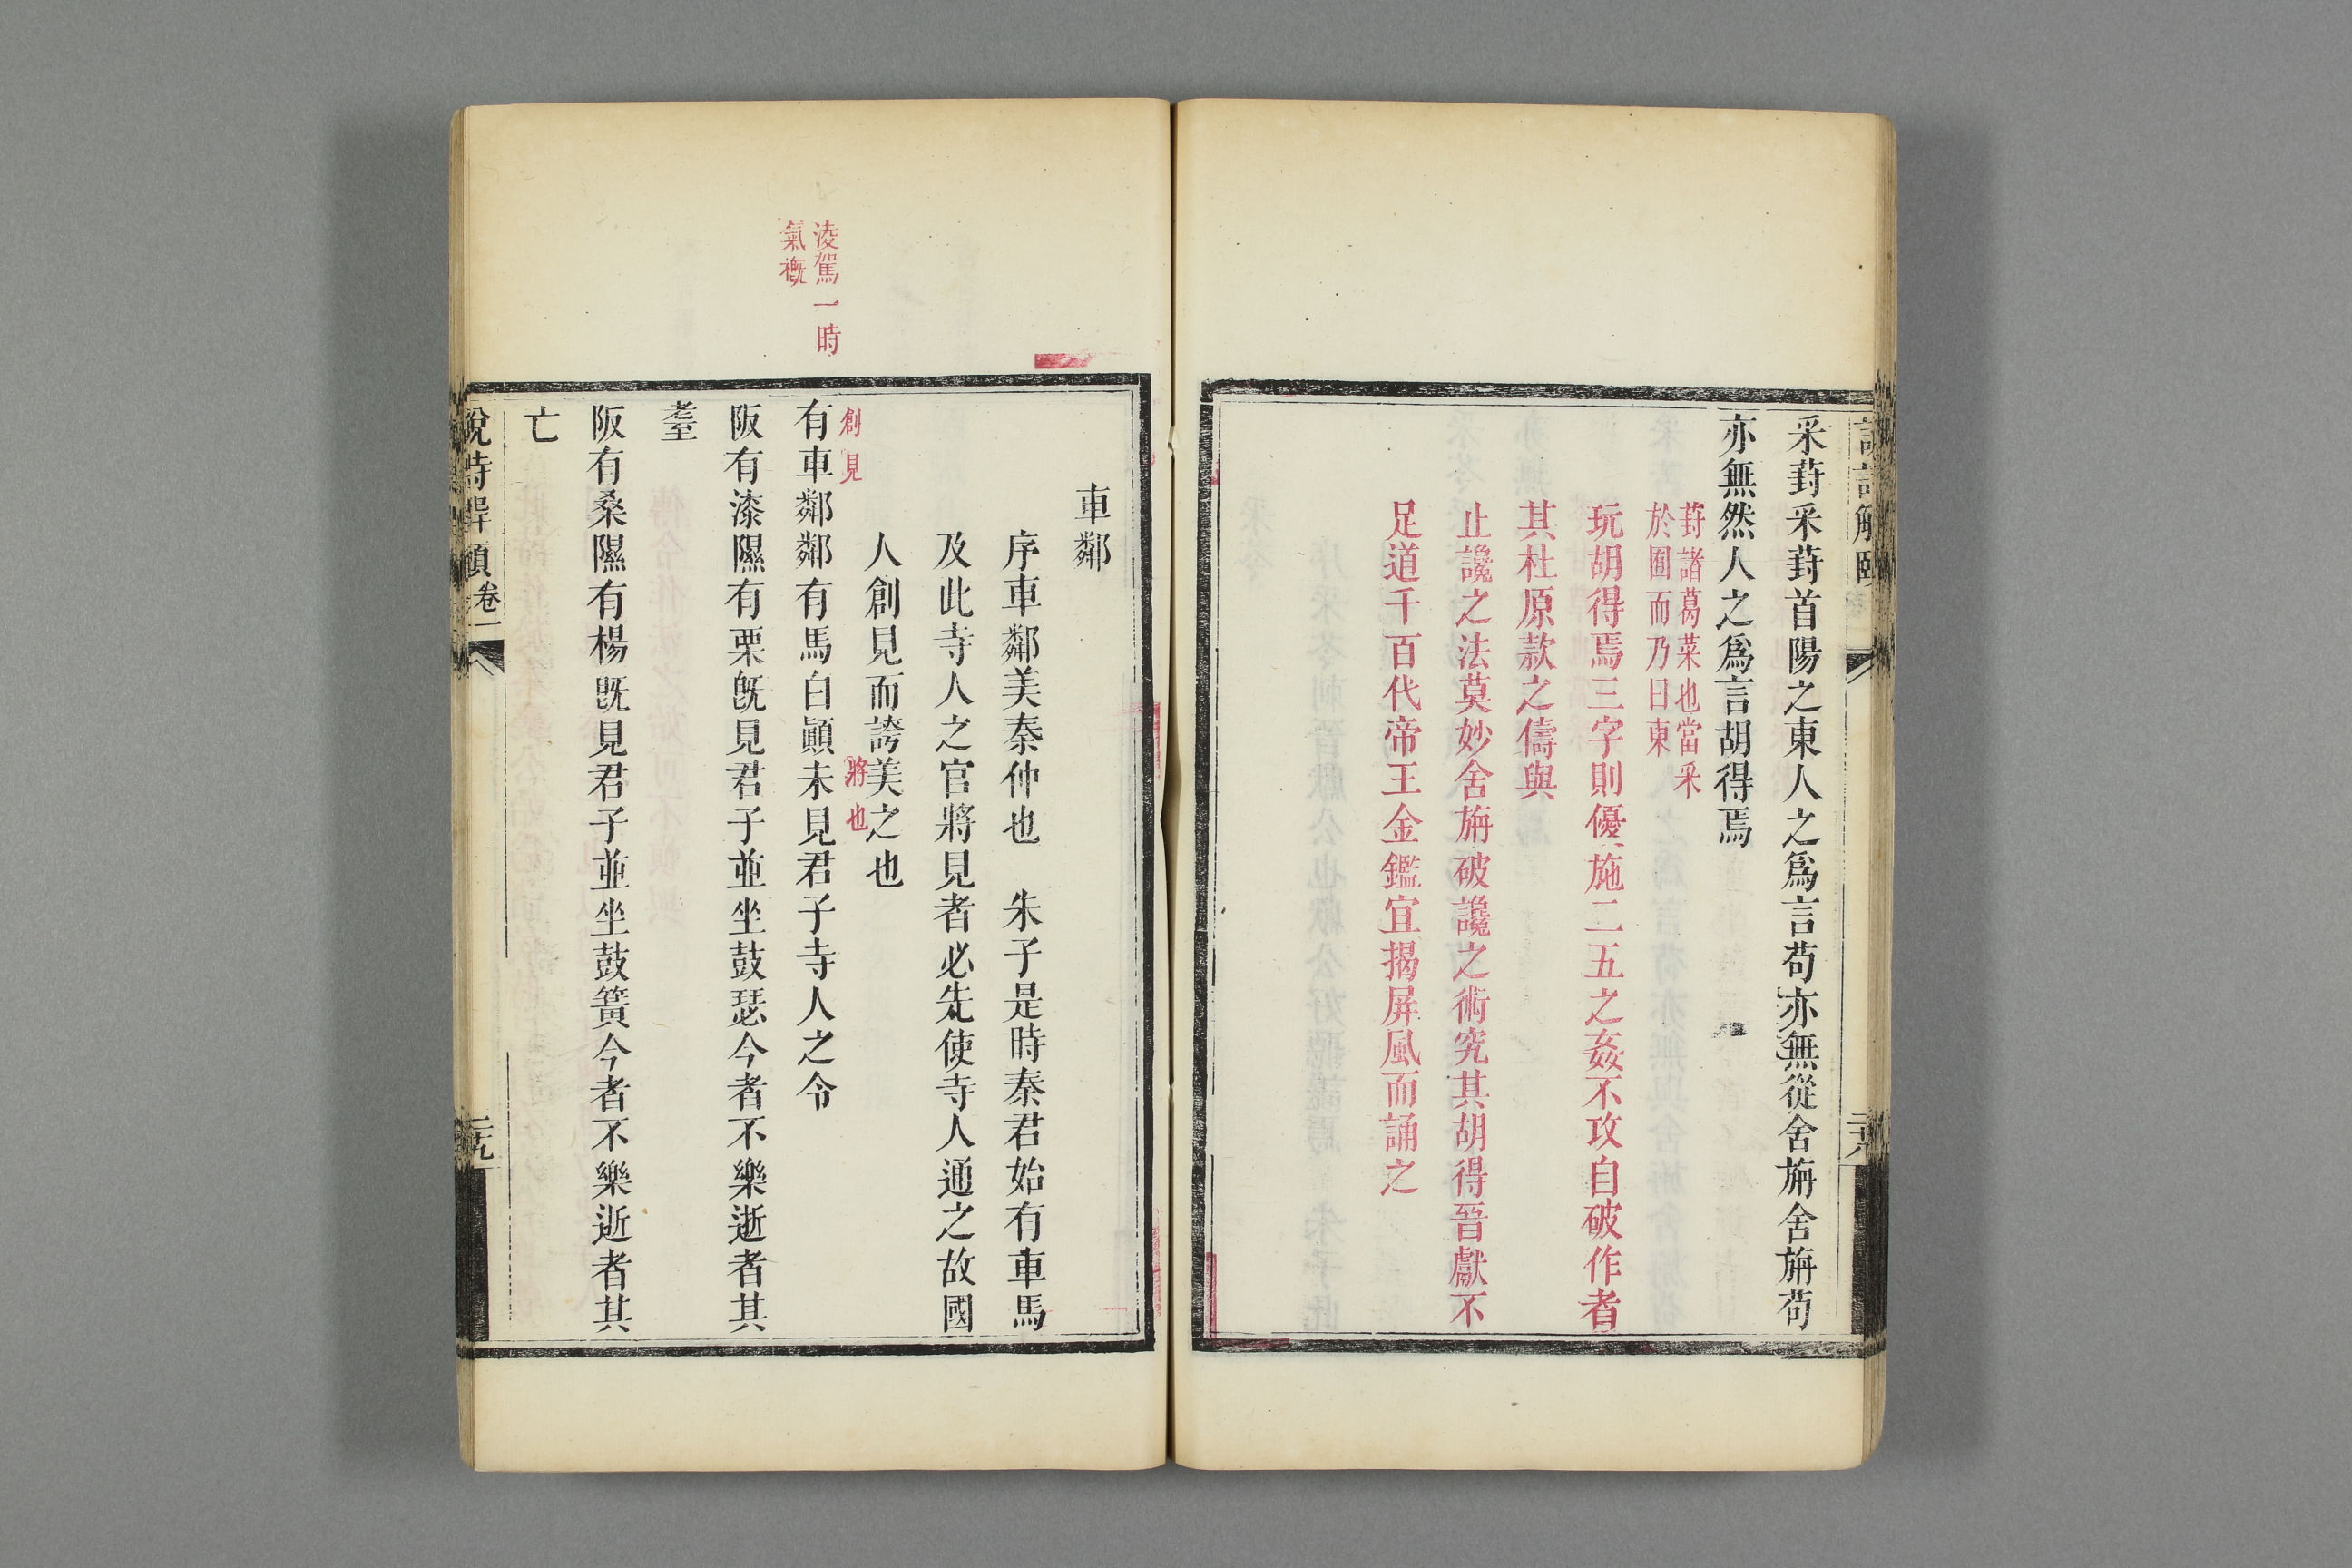 采葑采葑首陽之東人之爲言苟亦無從舍旃舍旃苟
亦無然人之爲言胡得焉
葑諸葛菜也當采
於圃而乃曰東
玩胡得焉三字則優施二五之姦不攻自破作者
其杜原款之儔與
止讒之法莫妙舍旃破讒之術究其胡得晉獻不
足道千百代帝王金鑑宜揭屏風而誦之
車鄰
序車鄰美秦仲也　朱子是時秦君始有車馬
及此寺人之官將見者必先使寺人通之故國
人創見而誇美之也
凌駕一時
氣概
創見
將也
有車鄰鄰有馬白顚未見君子寺人之令
阪有漆隰有栗旣見君子並坐鼓瑟今者不樂逝者其
耋
阪有桑隰有楊旣見君子並坐鼓簧今者不樂逝者其
亡
說詩解頤卷一
二十九